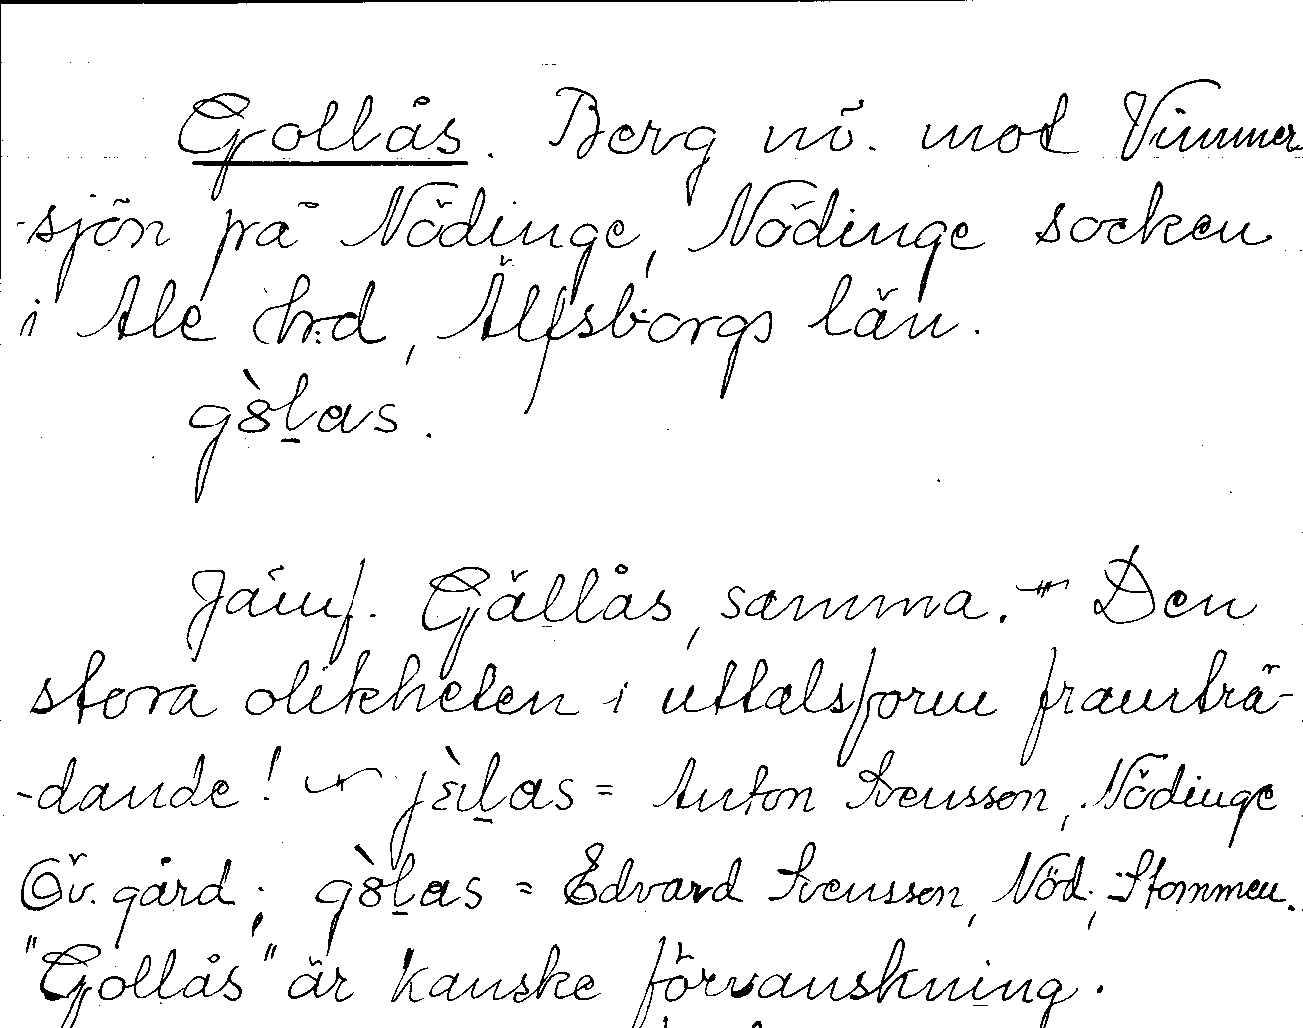 Gollås. Berg nö. mot Vimmer
-sjön på Nödinge, Nödinge socken
i Ale hrd, Älfsborgs län.
gòl̠as.
Jämf. Gällås, samma. – Den
stora olikheten i uttalsform framträ-
-dande! – jèl̠as = Anton Svensson, Nödinge
Öv. gård; gòl̠as = Edvard Svensson, Nöd; Stommen.
"Gollås" är kanske förvanskning.